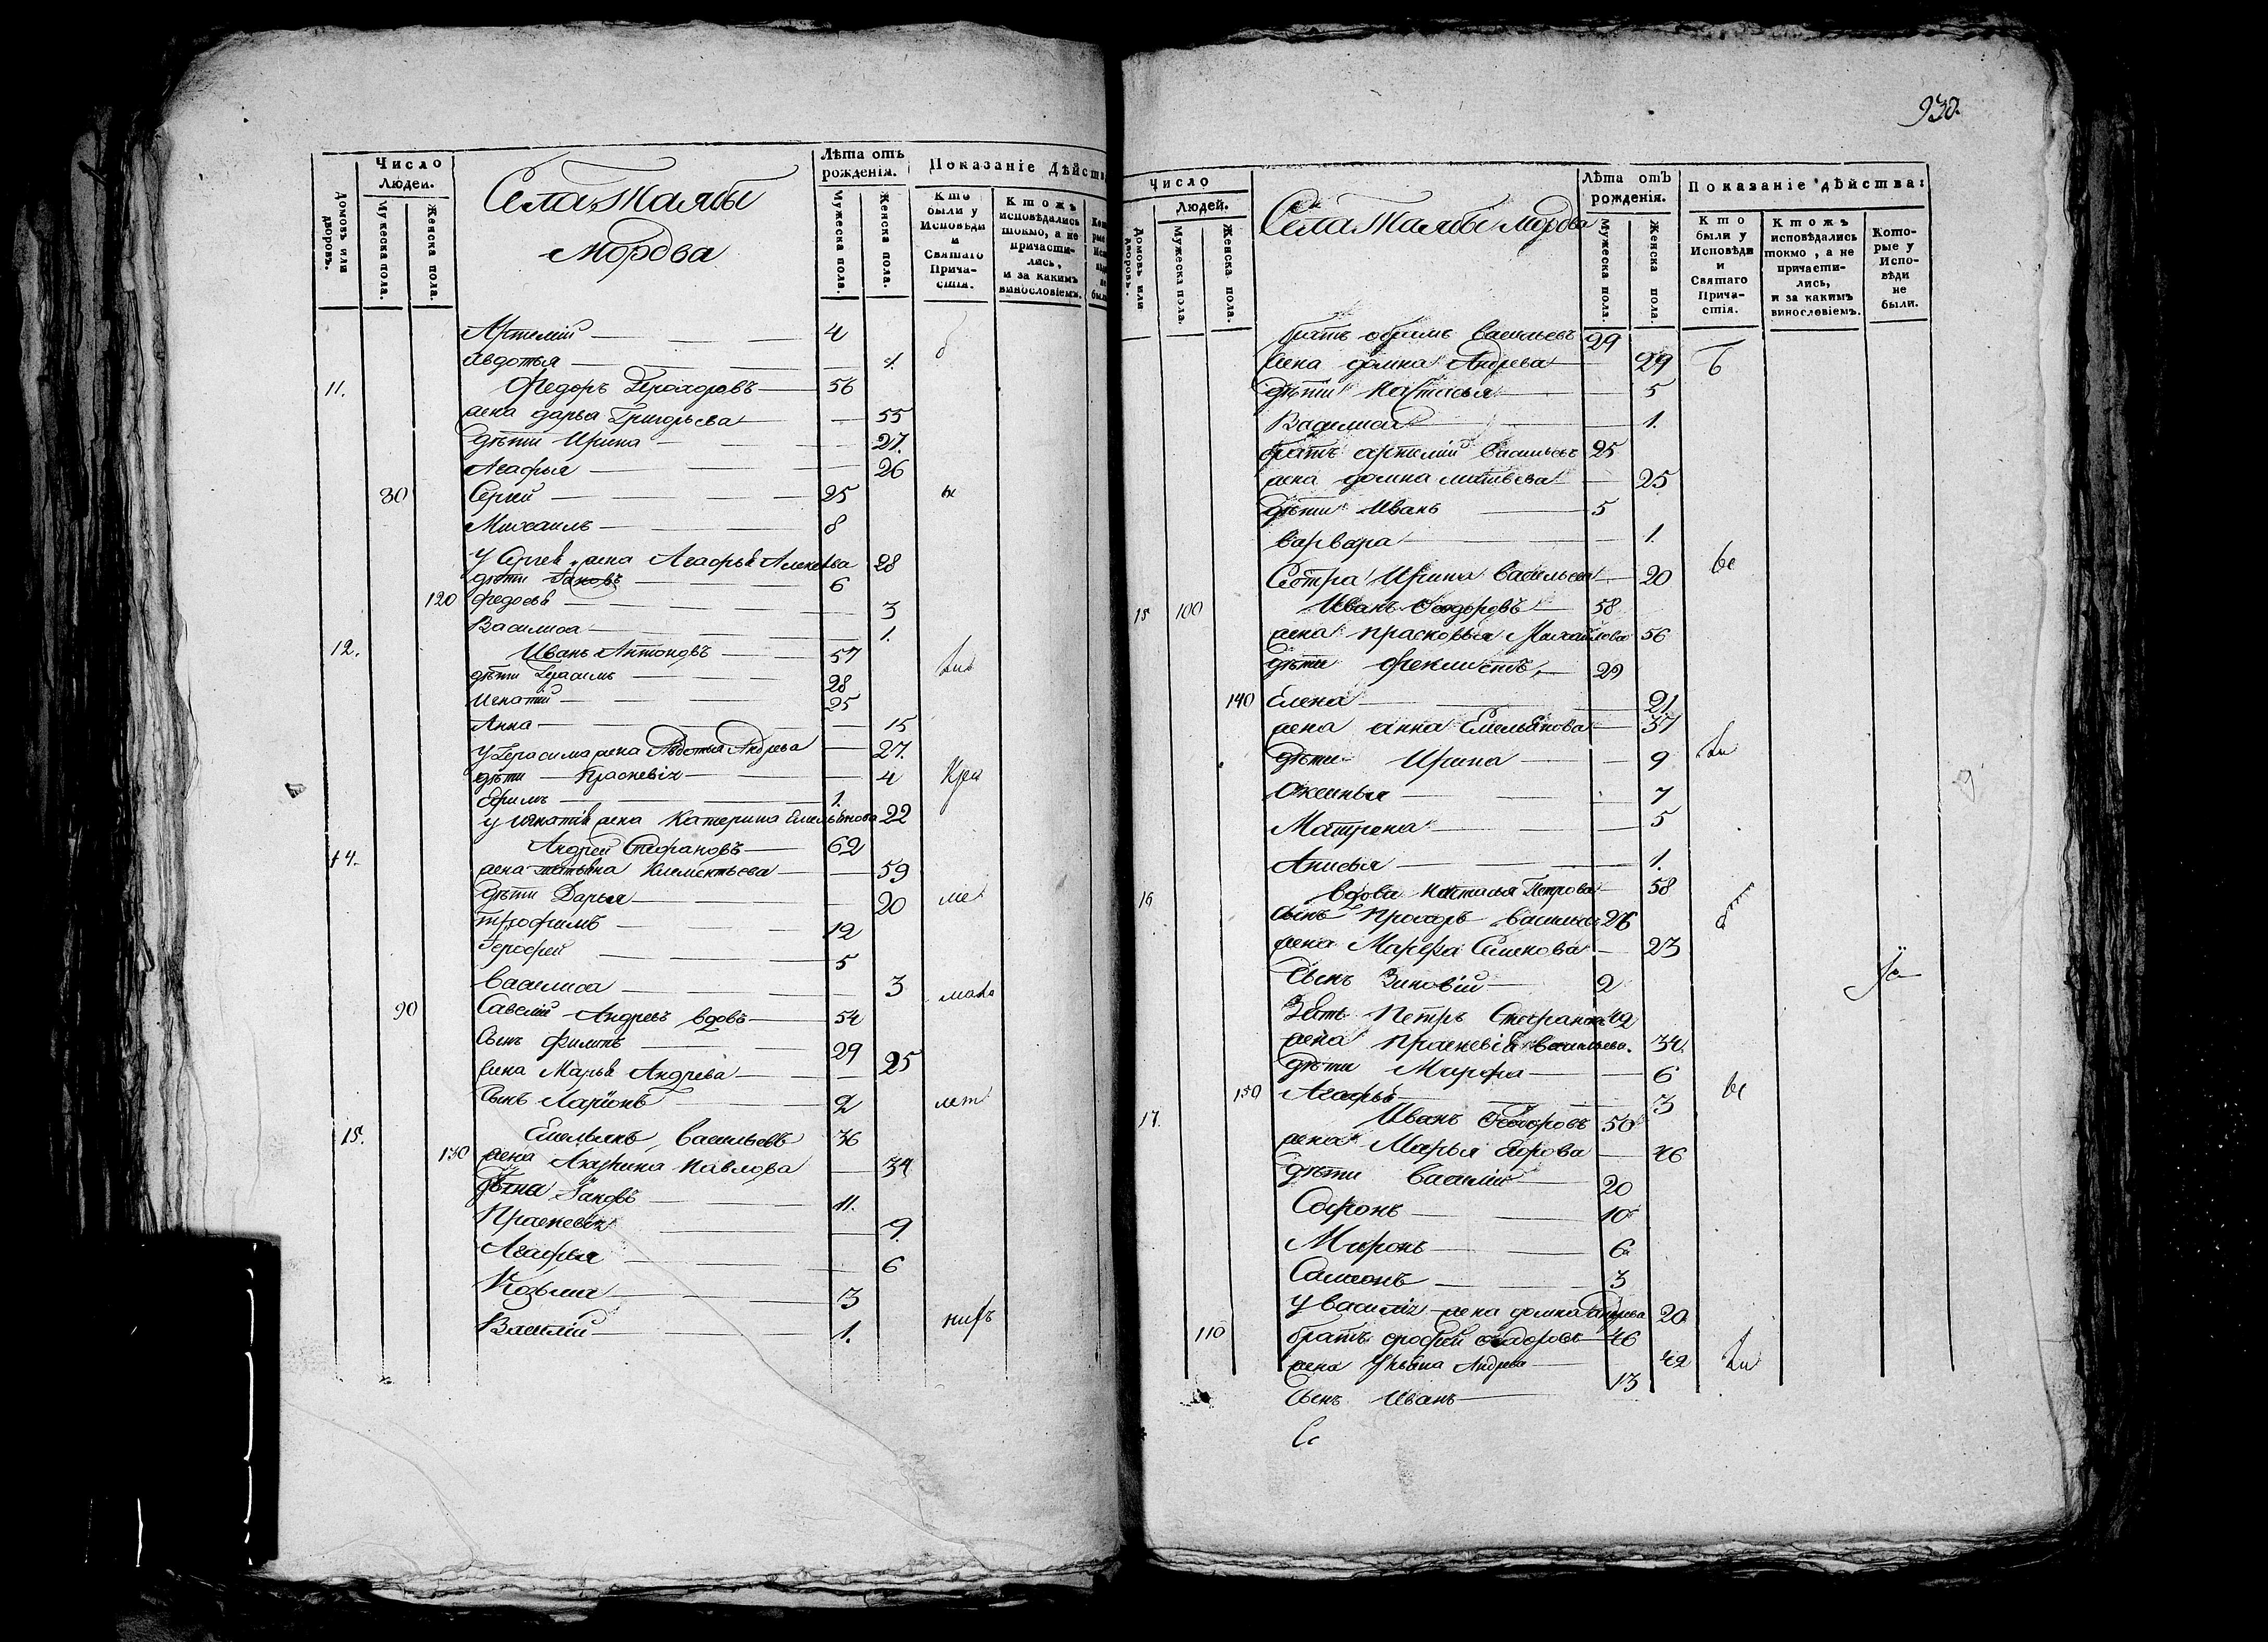 930.
Число Людей.
Домовъ или дворовъ.
Мужеска пола.
Женска пола.
Села Маябы
Мордва
Лѣта отъ рожденія.
Мужеска пола.
Женска пола.
Показаніе дѣйств
Кто были у Исповѣди и Святаго Причастія.
Ктожъ исповѣдались токмо, а не причастились, и за какимъ винословіемъ.
Артемій 4
Авдотья 1.
11. Федоръ Прохоровъ 56
жена дарья Григорьева 55
дѣти Ирина 27.
Агафья 26
80 Сергей 25
Михаилъ 8
У Сергея жена Агафья Алексева 28
дѣти Іаковъ 6
120 Федосья 3
Василиса 1.
12. Иванъ Антоновъ 57
дѣти Герасимъ 28
Игнатій 25
Анна 15
У Герасима жена Авдотья Андрева 27.
дѣти Праскевія 4
Ефимъ 1.
у Игнатія жена Катерина Емельянова 22
14. Андрей Стефановъ 62
жена татьяна Климентьева 59
дѣти Дарья 20
Трофимъ 12
Ерофей 5
Василиса 3
90 Савелій Андревъ вдовъ 54
Сынъ Филипъ 29
жена Марья Андрева 25
Сынъ Ларіонъ 2
15. Емельянъ Васильевъ 36
130 жена Акулина Павлова 34
Дѣти Іаковъ 11.
Праскевія 9
Агафья 6
Козьма 3
Василій 1.
Число Людей.
Домовъ или дворовъ.
Мужеска пола.
Женска пола.
Села Маябы Мордва
Лѣта отъ рожденія.
Мужеска пола.
Женска пола.
Показаніе дѣйства:
Кто были у Исповѣди и Святаго Причастія.
Ктожъ исповѣдались токмо, а не причастились, и за какимъ винословіемъ.
Которые у Исповѣди не были.
братъ Васильевъ 29
жена домна Андрева 29
дѣти Настасья 5
Василиса 1.
братъ артемій Васильевъ 25
жена домна 25
дѣти Иванъ 5
варвара 1
Сестра Ирина Васильева 20
15 100 Иванъ Феодоровъ 58
жена прасковья Михайлова 56
дѣти Феклистъ, 29
140 Елена 21
жена анна Емельянова 37
дѣти Ирина 9
Аксинья 7
Матрена 5
Анисья 1.
16 вдова Настасья Петрова 58
Сынъ Прохоръ Васильевъ 26
жена Марфа Семенова 23
Сынъ Зиновій 2
Зять Петръ Стефановъ 42
жена Праскевія Васильева. 34.
дѣти Марфа 6
150 Агафья 3
17. Иванъ Феодоровъ 50
жена Марья 46
дѣти Василій 20
Софонъ 10
Миронъ 6
Самсонъ 3
У Василія жена домна Андрева 20
110 братъ Феодоровъ 46
жена Ульяна Андрева 42
Сынъ Иванъ 13